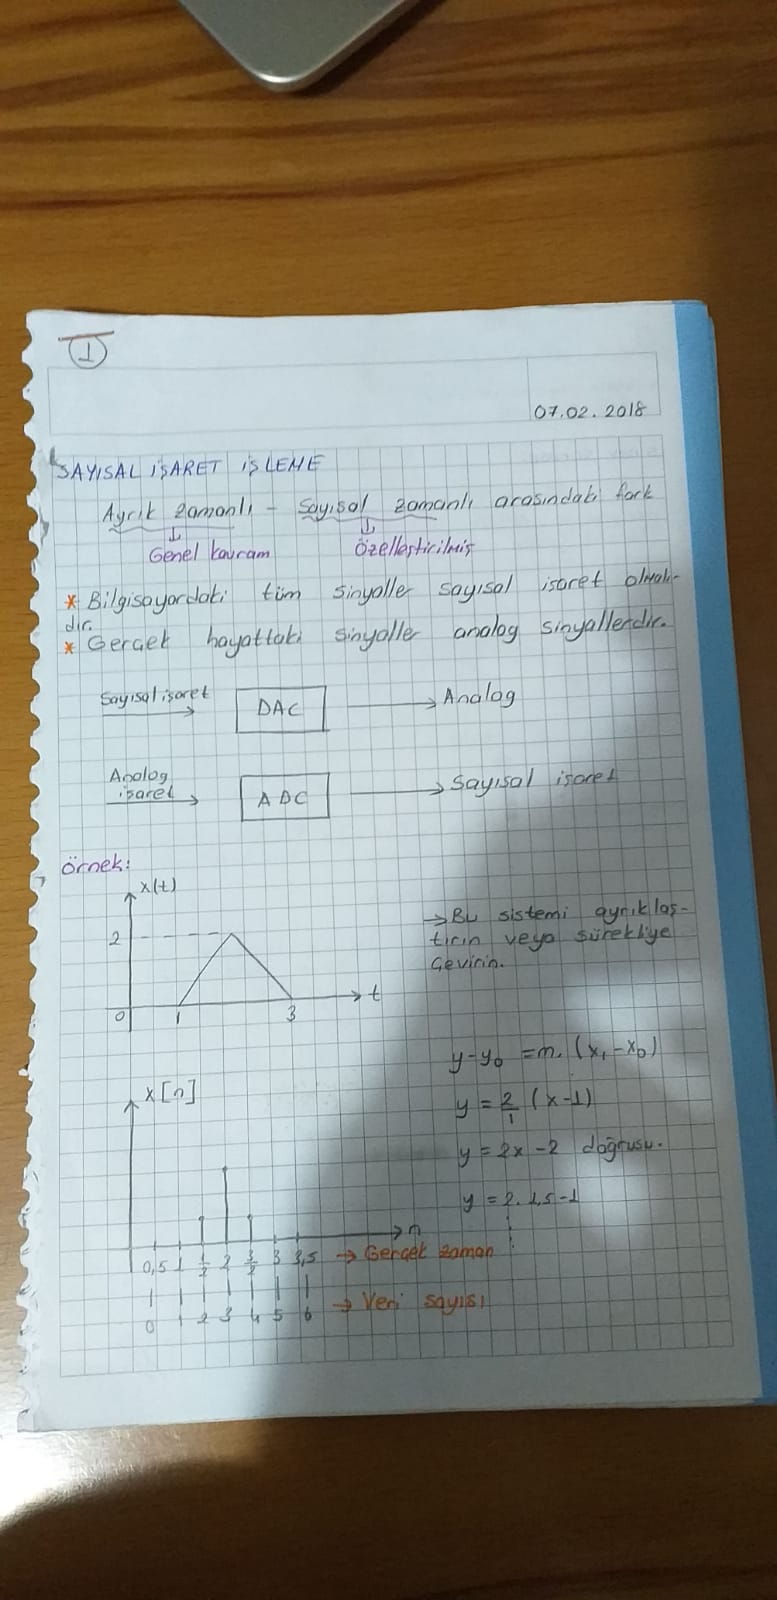 1
07.02.2018
SAYISAL İŞARET İŞLEME
Ayrık zamanlı - Sayısal zamanlı arasındaki fark
Genel kavram Özelleştirilmiş
* Bilgisayardaki tüm sinyaller sayısal işaret olmalı-
dır.
* Gerçek hayattaki sinyaller analog sinyallerdir.
Sayısal işaret DAC Analog
Analog
işaret ADC Sayısal işaret
Örnek:
x(t)
2
0 1 3 t
→ Bu sistemi ayrıklaş-
tırın veya sürekliye
çevirin.
y-y₀ = m. (x₁-x₀)
y = 2/1 (x-1)
y = 2x-2 doğrusu.
y = 2. 1,5-1
x[n]
n
0,5 1 1/2 2 3/2 3 3,5 → Gerçek zaman
0 1 2 3 4 5 6 → Veri sayısı